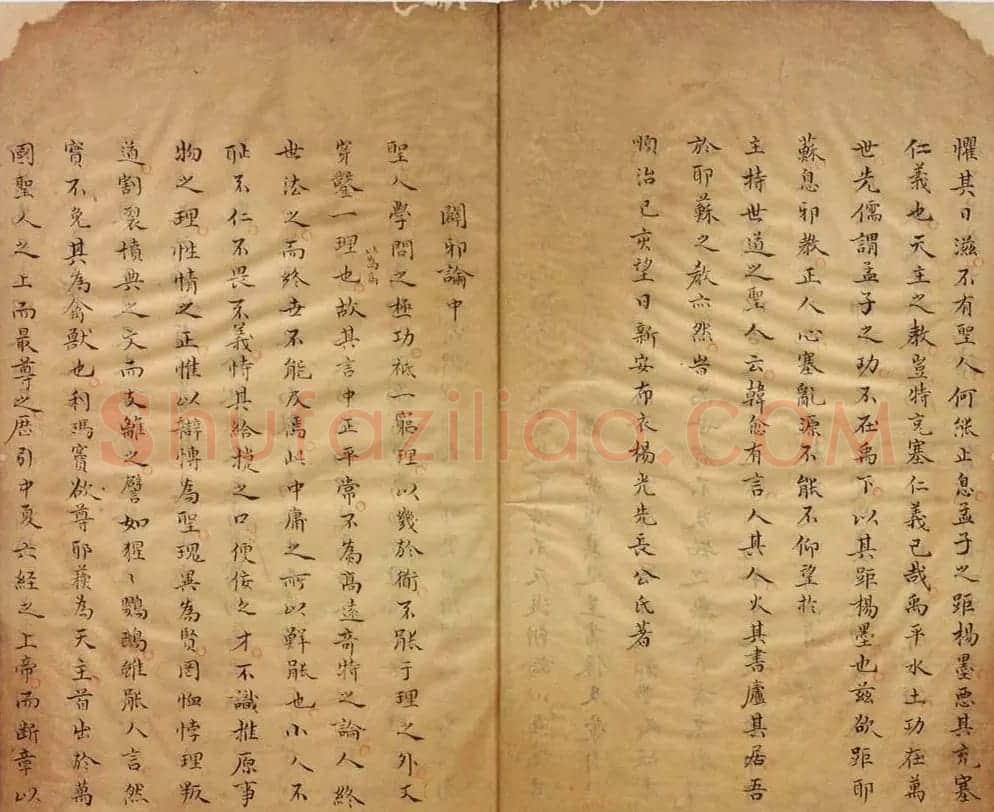 懼其日滋不有聖人何能止息孟子之距楊墨惡其充塞
仁義也天主之教豈特充塞仁義已哉禹平水土功在萬
世先儒謂孟子之功不在禹下以其距楊墨也茲欲距耶
蘇息邪教正人心塞亂源不能不仰望於
主持世道之聖人云韓愈有言人其人火其書廬其居吾
於耶蘇之教亦然旹
順治己亥望日新安布衣楊光先長公氏著
闢邪論中
聖人學問之極功祗一窮理以幾於衜不能于理之外又
穿鑿一理以為高也故其言中正平常不為高遠奇特之論人終
世法之而終世不能及焉此中庸之所以鮮能也小人不
恥不仁不畏不義恃其給捷之口便佞之才不識推原事
物之理性情之正惟以辯博為聖瑰異為賢罔恤悖理叛
道割裂墳典之文而支離之譬如猩〻鸚鵡雖能人言然
實不免其為禽獸也利瑪竇欲尊耶蘇為天主首出於萬
國聖人之上而最尊之曆引中夏六經之上帝而斷章以
Shufaziliao.COM